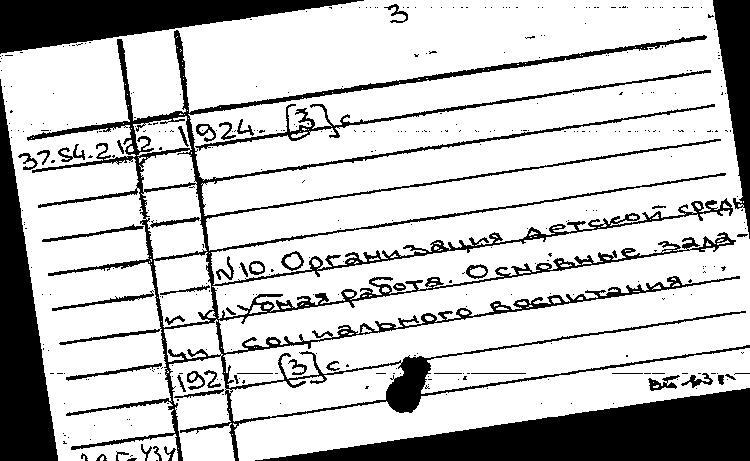 3
37.54.2.122. 1924. [3] с.
№10. Организация детской среды
и клубная работа. Основные зада-
чи социального воспитания.
1924. [3] с.